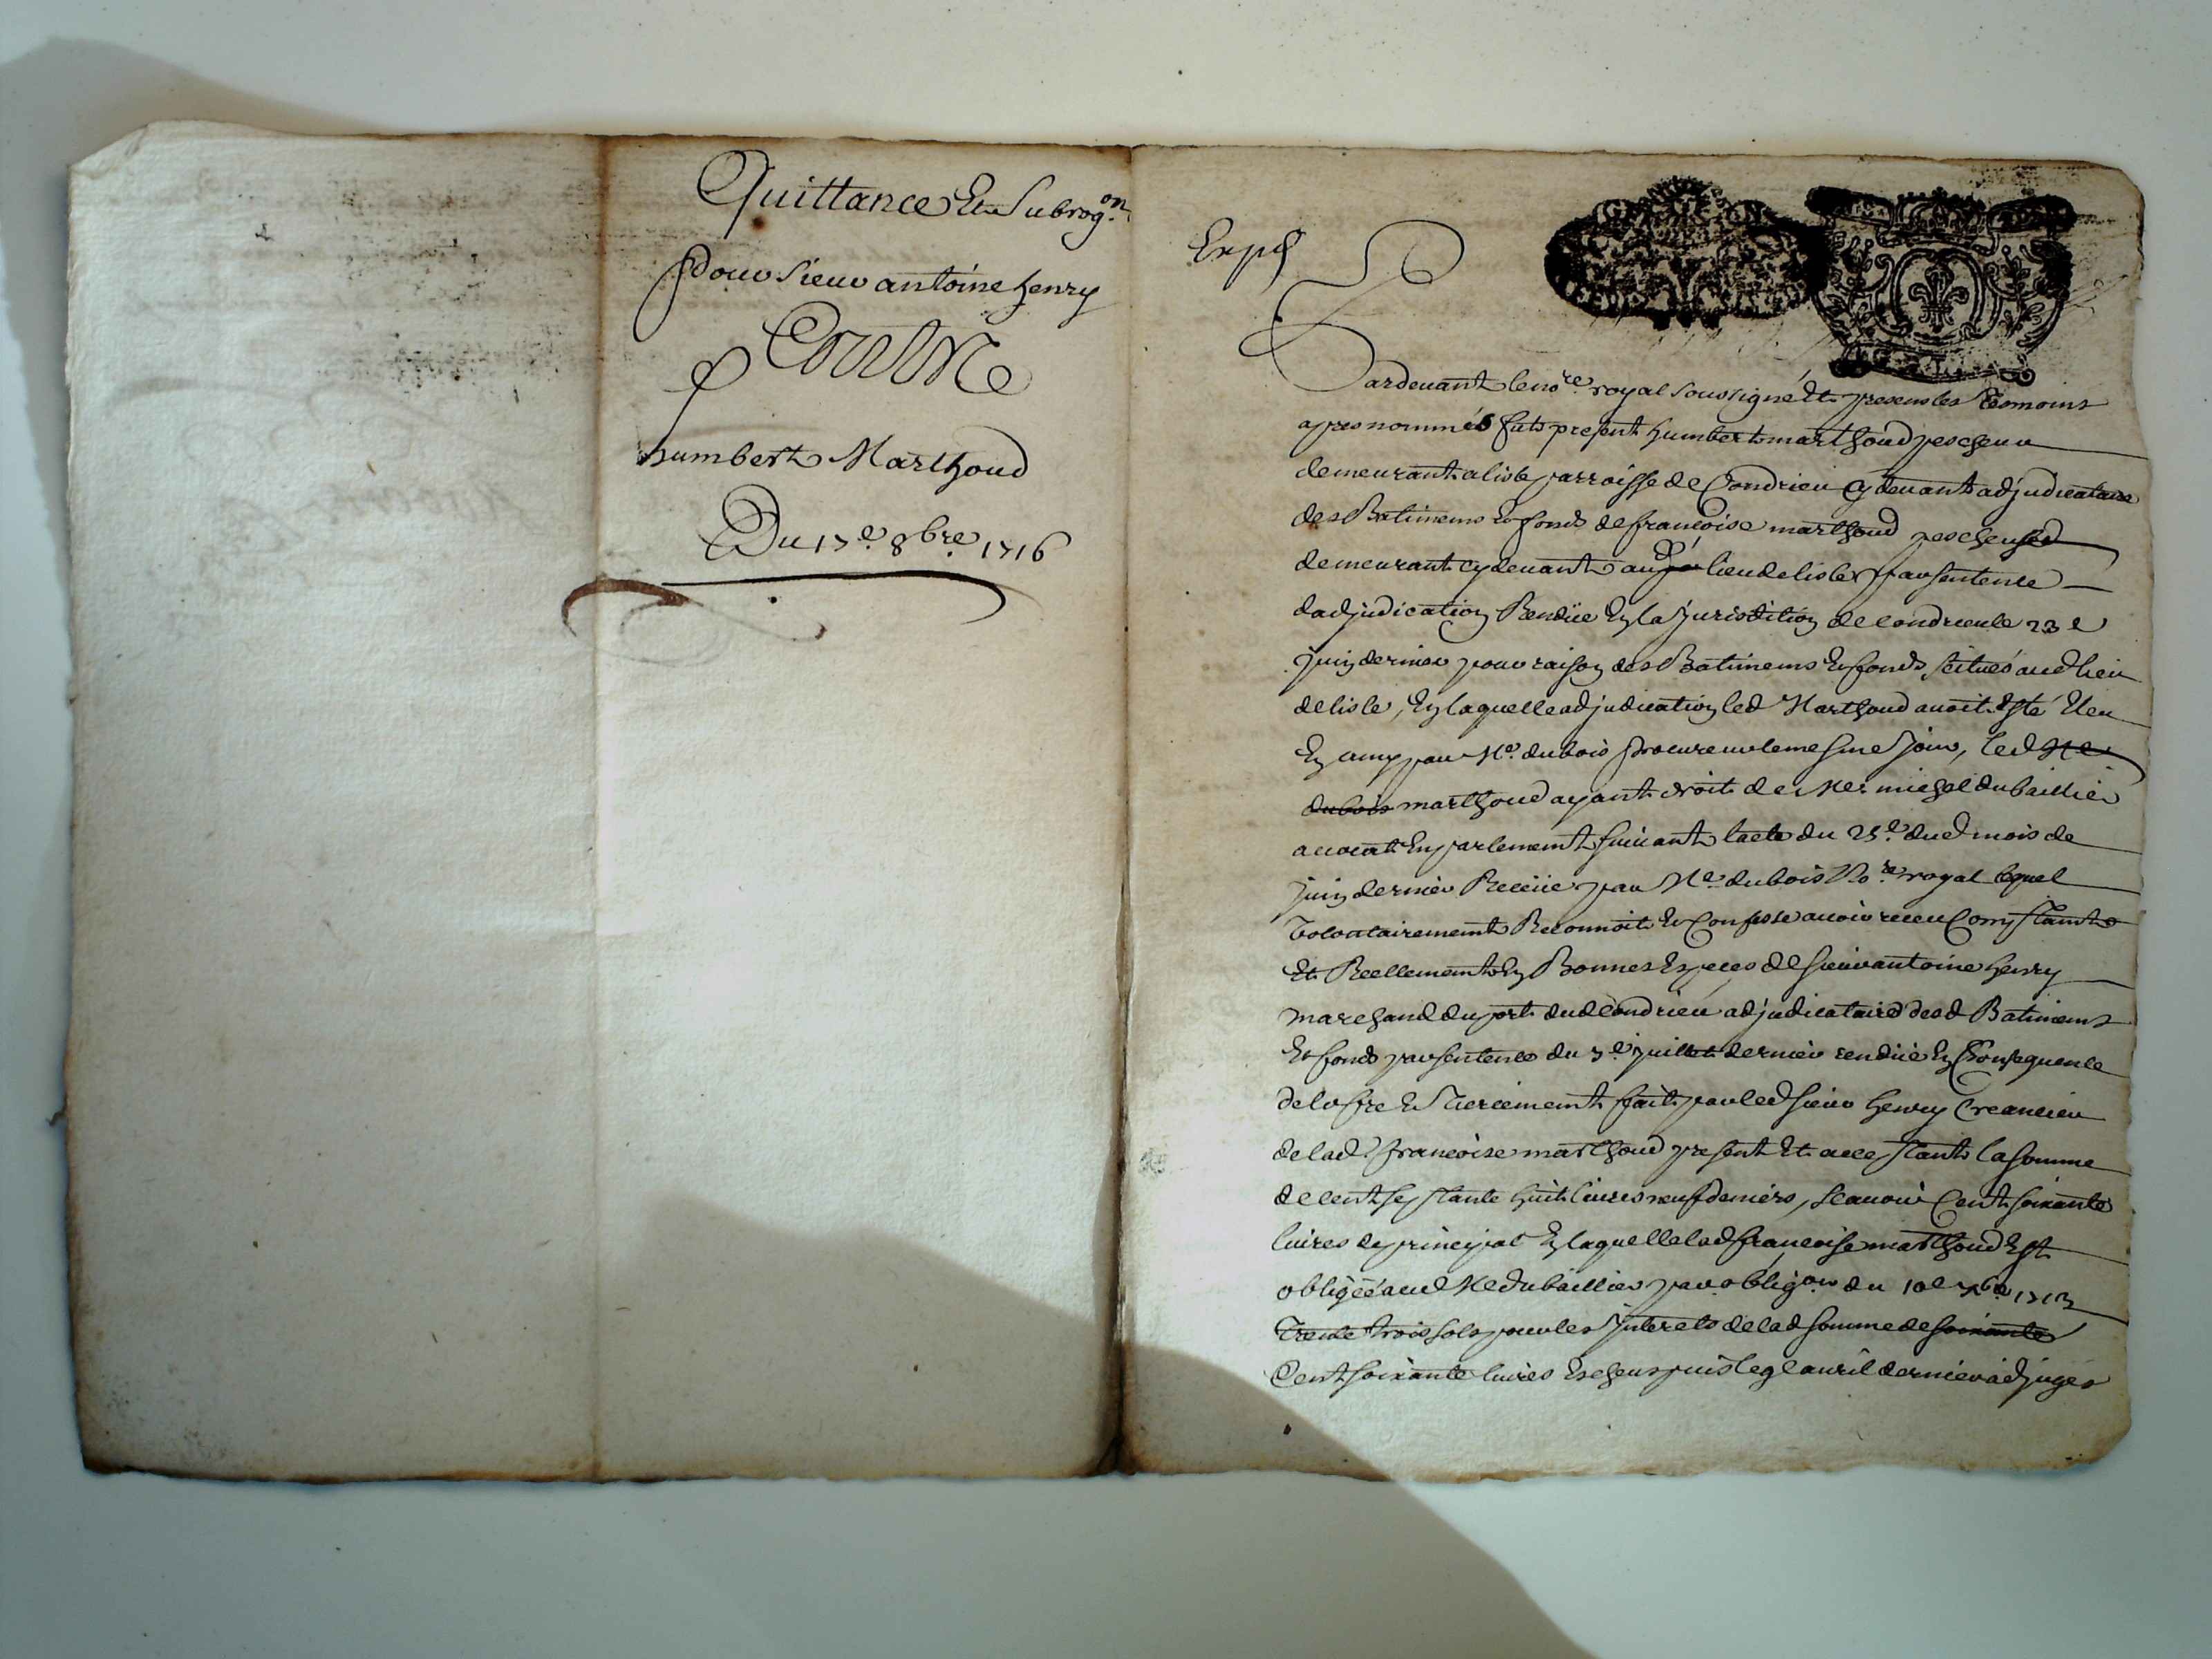 Quittance Et Subrog.on
Pour Sieur antoine henry
Contre
humbert Marthoud
Du 17e. 8bre. 1716
Expé
Pardevant le nore. royal soussigné Et presens les Temoins
apres nommés fut present humbert marthoud pescheur
demeurant a lisle parroisse de Condrieu cy devant adjudicataire
des Batimens Et fonds de françoise marthoud pescheuse
demeurant cy devant aud lieu de lisle par sentence
dadjudication Rendüe En la Jurisdition de condrieu le 23e
juin dernier pour raison des Batimens Et fonds scitués aud lieu
de lisle, En laquelle adjudication led Marthoud avoit Esté Eleu
En amy par Me. dubois procureur le mesme jour, led Me
dubois marthoud ayant droit de Mer michel dubaillier
avocat En parlement suivant lacte du 25e. dud mois de
juin dernier Receüe par Me. dubois Nore royal lequel
volontairement Reconnoit Et Confesse avoir receu Comptant
Et Reellement En Bonnes Especes de sieur antoine henry
marchand du port dud Condrieu adjudicataire desd Batimens
Et fonds par sentence du 3e juillet dernier rendüe En Consequence
de lofre Et Tiercement fait par led sieur henry Creancier
de lad. françoise marthoud present Et acceptant la somme
de cent septante huit livres neuf deniers, scavoir Cent soixante
livres de principal En laquelle lad françoise marthoud Est
obligée aud Me dubaillier par obligon du 10e 1713
Trente trois sols pour les Interets de lad somme de soixante
Cent soixante livres Escheus puis le 9e avril dernier adjugés